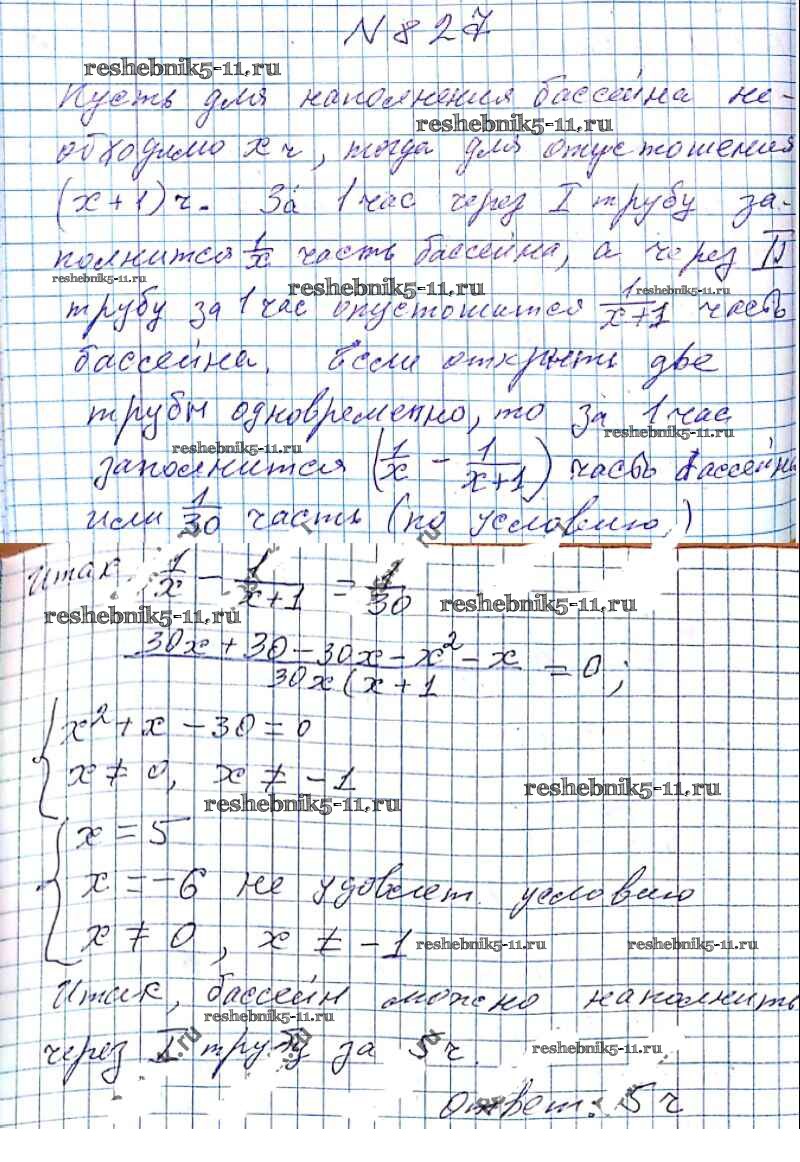 N 827
reshebnik5-11.ru
Пусть для наполнения бассейна не-
reshebnik5-11.ru
обходимо x ч, тогда для опустошения
(x+1) ч. За 1 час через I трубу за-
полнится 1/x часть бассейна, а через II
reshebnik5-11.ru reshebnik5-11.ru reshebnik5-11.ru
трубу за 1 час опустошится 1/(x+1) часть
бассейна. Если открыть две
трубы одновременно, то за 1 час
reshebnik5-11.ru
заполнится (1/x - 1/(x+1)) часть бассейна
или 1/30 часть (по условию)
Итак 1/x - 1/(x+1) = 1/30
reshebnik5-11.ru reshebnik5-11.ru
(30x + 30 - 30x - x² - x)/(30x(x+1) = 0;
x² + x - 30 = 0
x ≠ 0, x ≠ -1
reshebnik5-11.ru reshebnik5-11.ru
x = 5
x = -6 не удовлет. условию
x ≠ 0, x ≠ -1
reshebnik5-11.ru reshebnik5-11.ru
Итак, бассейн можно наполнить
reshebnik5-11.ru
через I трубу за 5 ч.
reshebnik5-11.ru
Ответ: 5 ч